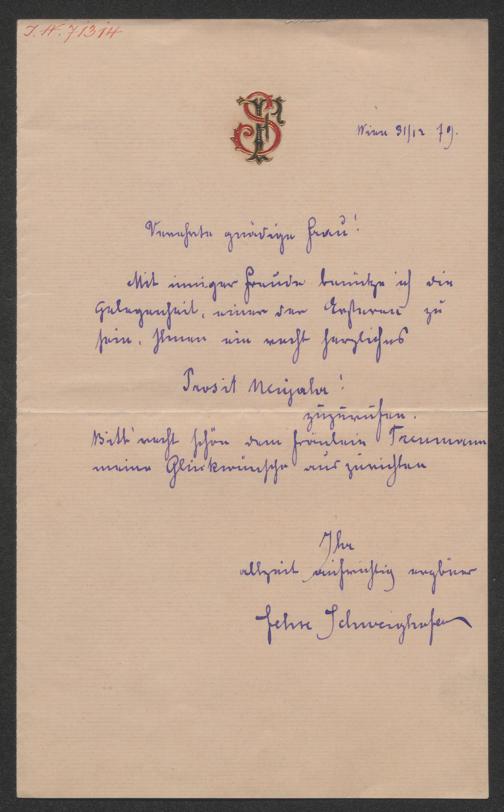 I.N. 71314
Wien 31/12 79.
Verehrte gnädige Frau!
Mit inniger Freude benütze ich die
Gelegenheit, einer der Ersteren zu
sein, Ihnen ein recht herzliches
Prosit Neujahr!
zuzurufen.
Bitt' recht schön dem Fräulein
meine Glückwünsche auszurichten
Ihr
allzeit aufrichtig ergbner
Schweighofer